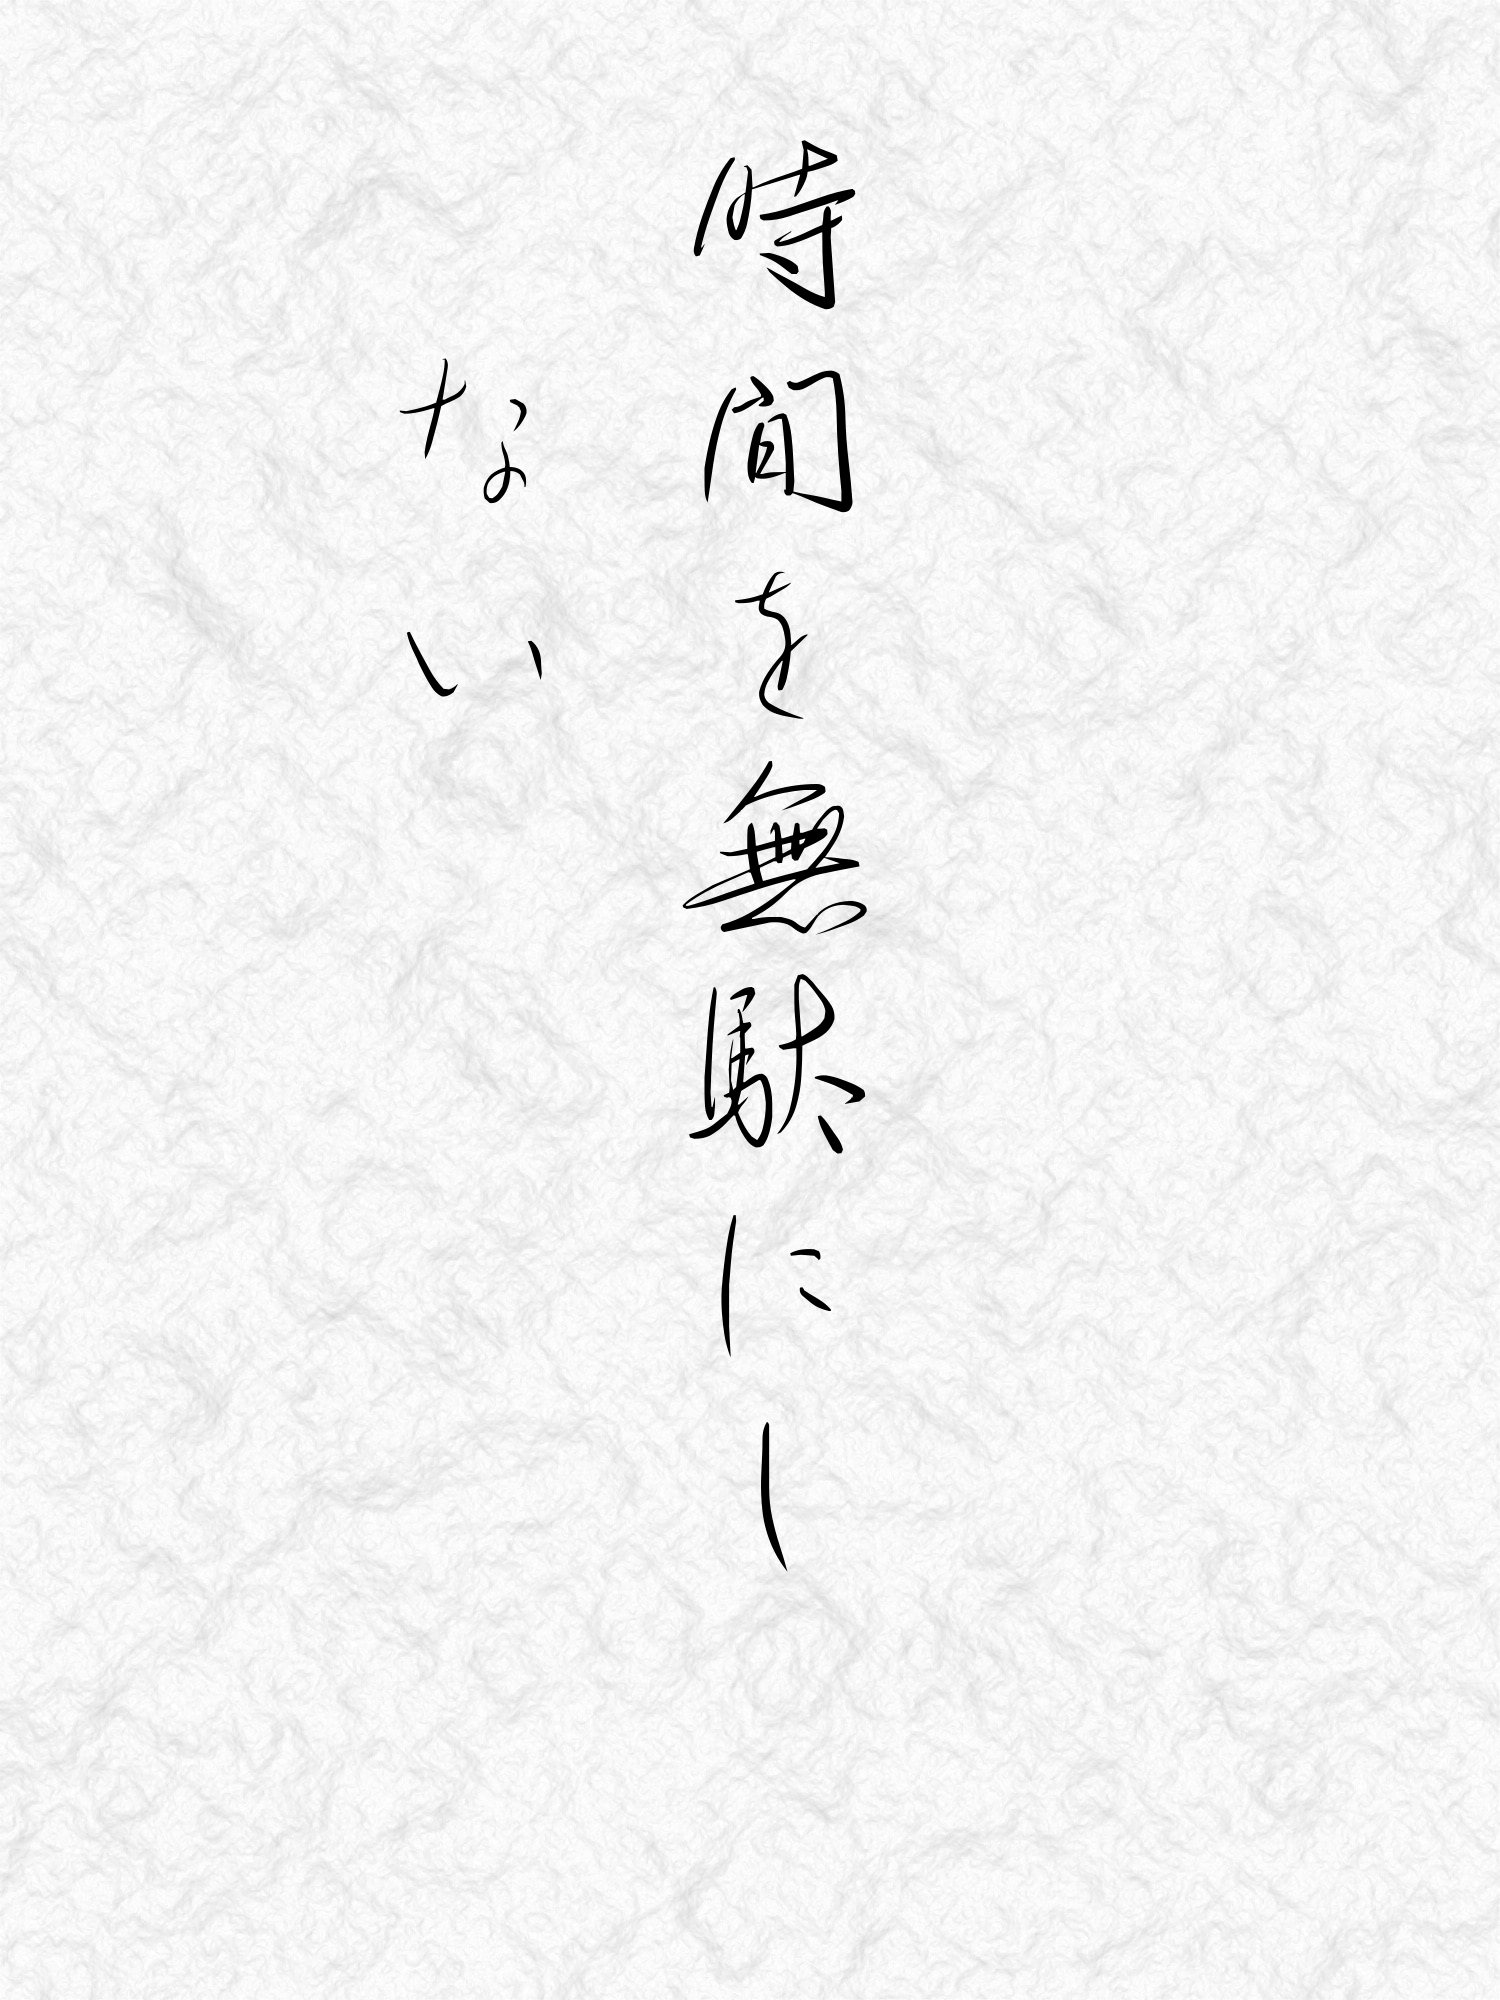 時間を無駄にし
ない